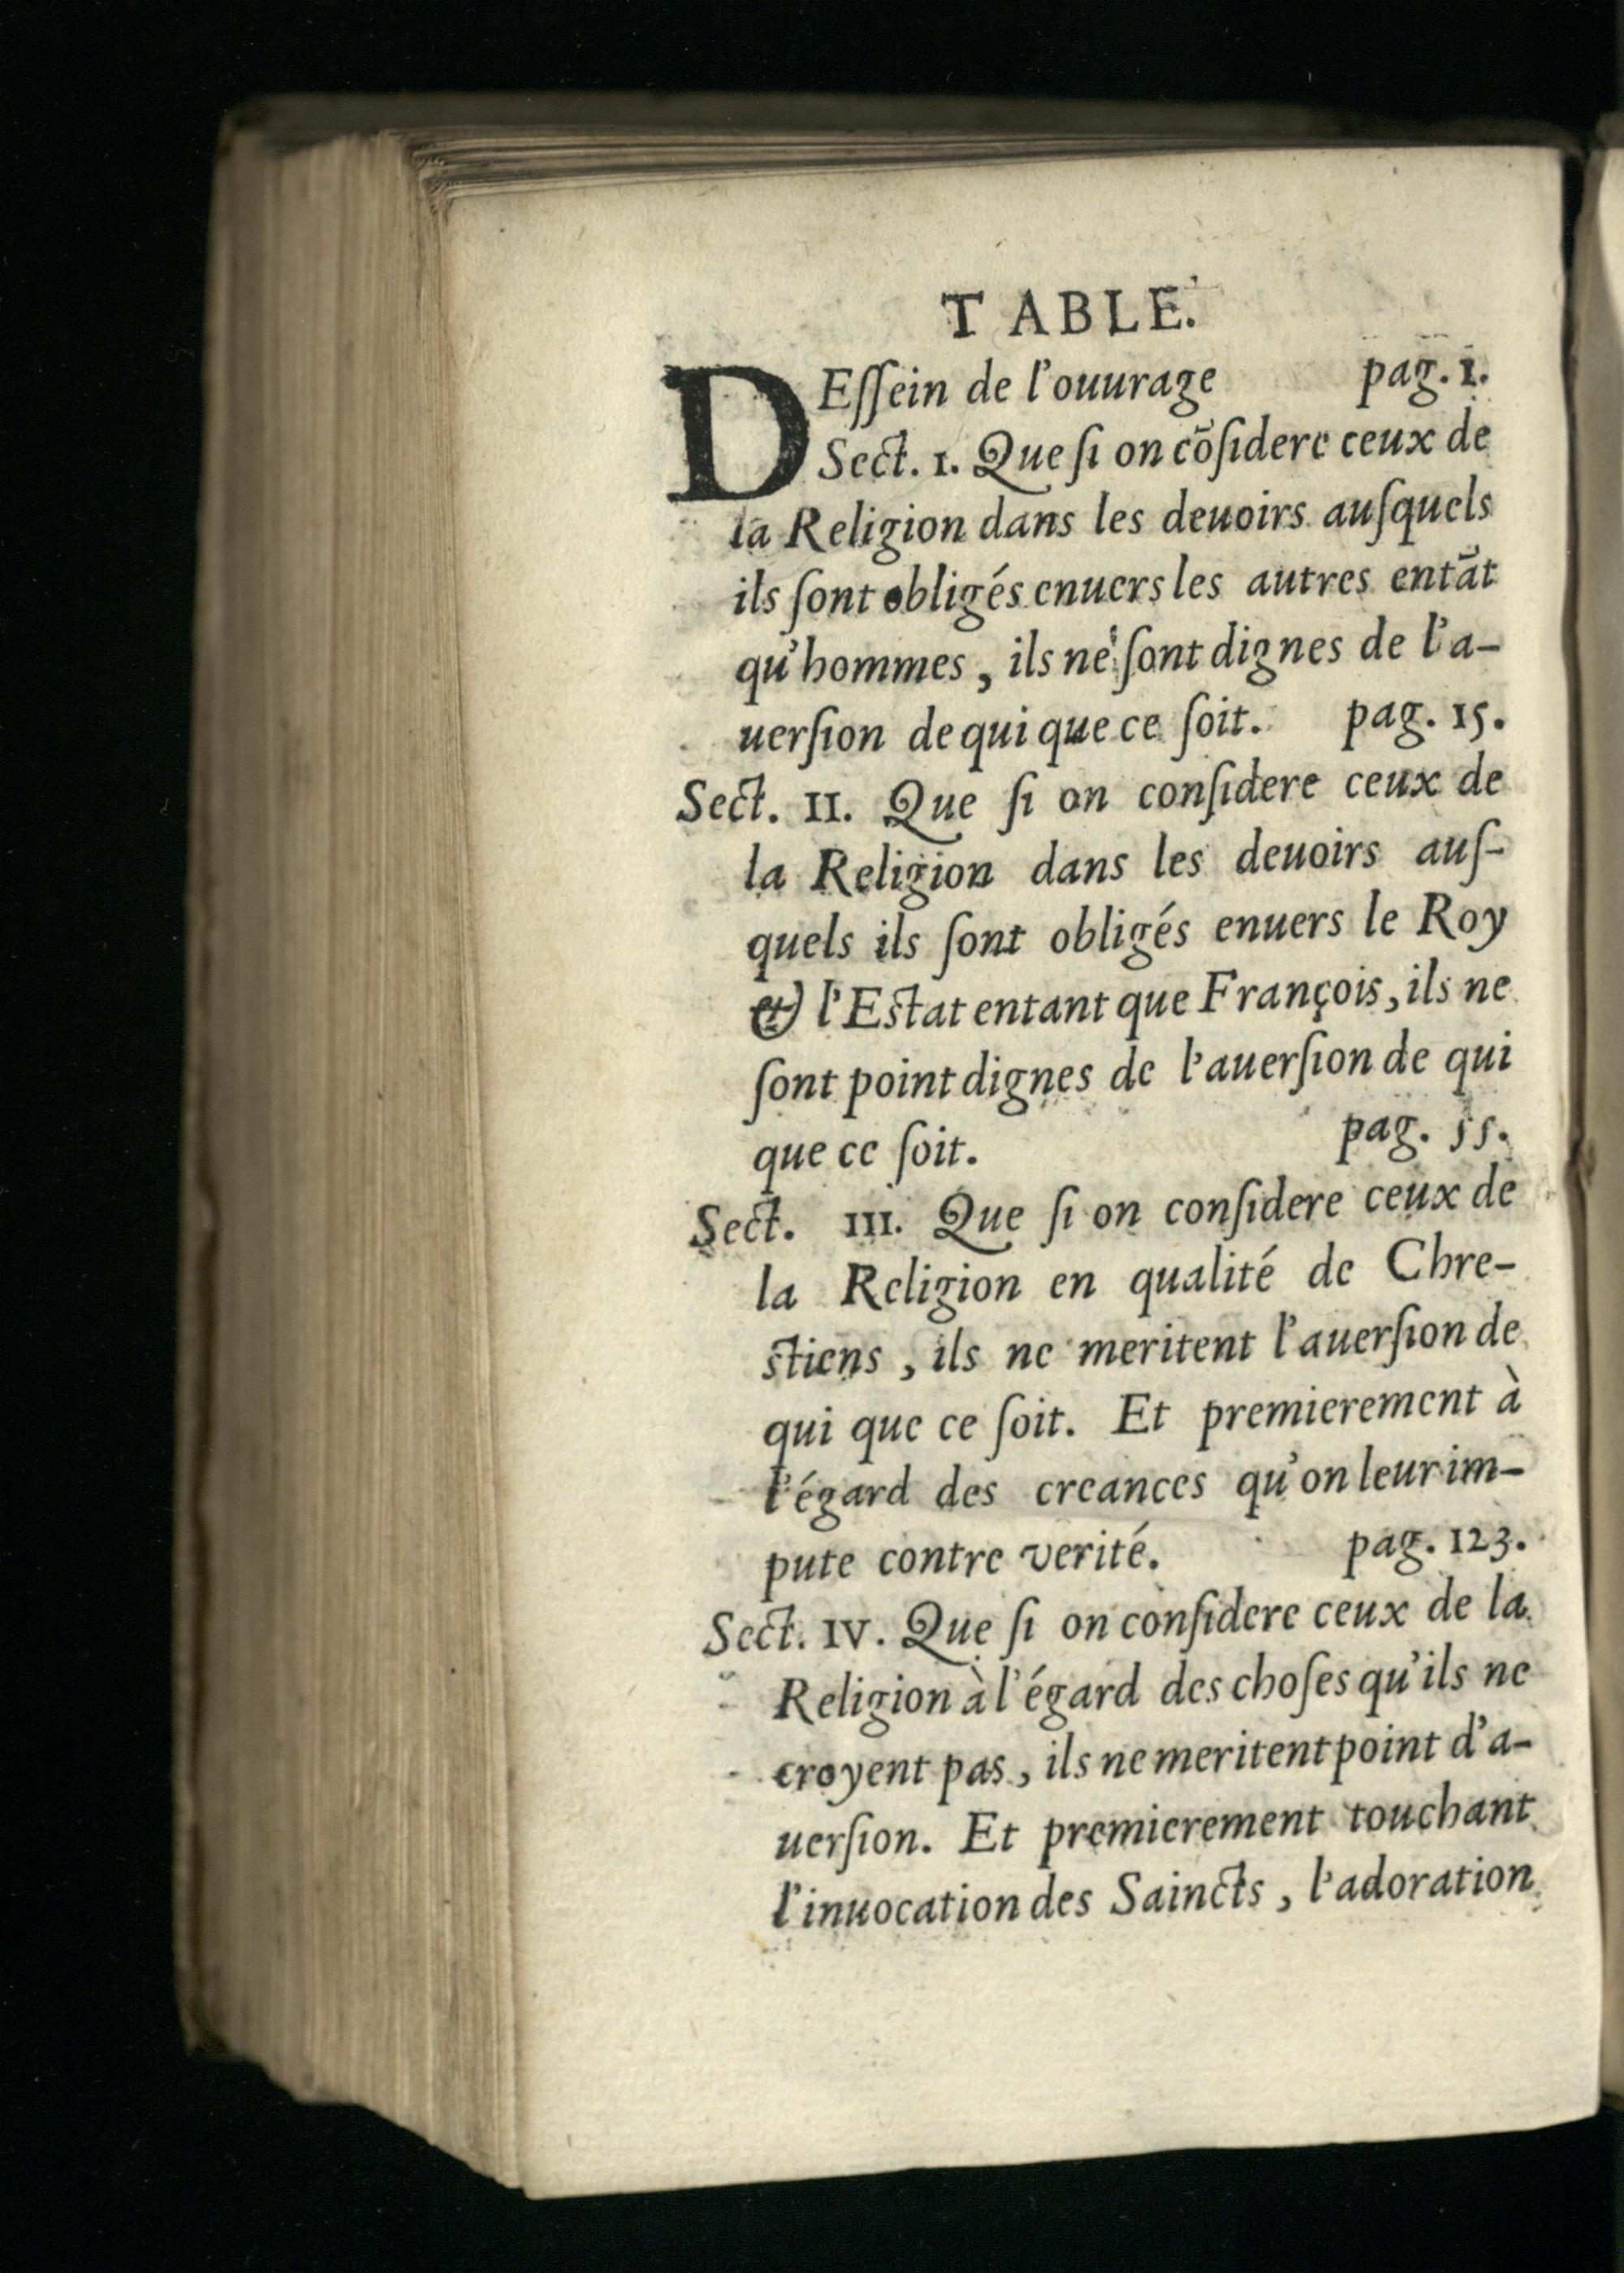 TABLE.
DEſſein de l'ouurage pag. 1.
Sect. 1. Que ſi on cõſidere ceux de
la Religion dans les deuoirs auſquels
ils ſont obligés enuers les autres entãt
qu'hommes, ils ne ſont dignes de l'a-
uerſion de qui que ce ſoit. pag. 15.
Sect. II. Que ſi on conſidere ceux de
la Religion dans les deuoirs auſ-
quels ils ſont obligés enuers le Roy
& l'Estat entant que François, ils ne
ſont point dignes de l'auerſion de qui
que ce ſoit. pag. 55.
Sect. III. Que ſi on conſidere ceux de
la Religion en qualité de Chre-
stiens, ils ne meritent l'auerſion de
qui que ce ſoit. Et premierement à
l'égard des creances qu'on leur im-
pute contre verité. pag. 123.
Sect. IV. Que ſi on conſidere ceux de la
Religion à l'égard des choſes qu'ils ne
croyent pas, ils ne meritent point d'a-
uerſion. Et premierement touchant
l'inuocation des Saincts, l'adoration